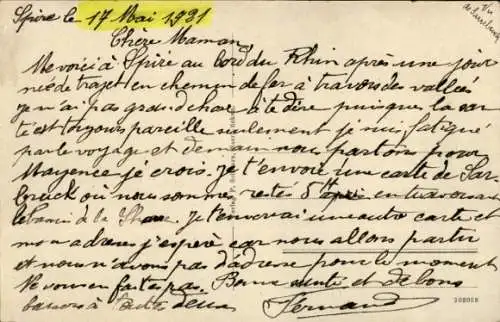 Spire le 17 Mai 1931
Chère Maman
Me voici à Spire au bord du Rhin après une jour
née de trajet en chemin de fer à travers des vallées
je n'ai pas grand chose à te dire puisque la san
té est toujours pareille seulement je suis fatigué
par le voyage et demain nous partons pour
Mayence je crois. je t'envoie une carte de Sar
bruck où nous sommes restés 5 en traversant
de la Je t'enverrai une autre carte et
mon adresse j'espère car nous allons partir
et nous n'avons pas d'adresse pour le moment
Ne vous en faites pas. Bonne santé et de bons
baisers à toutes deux Fernand